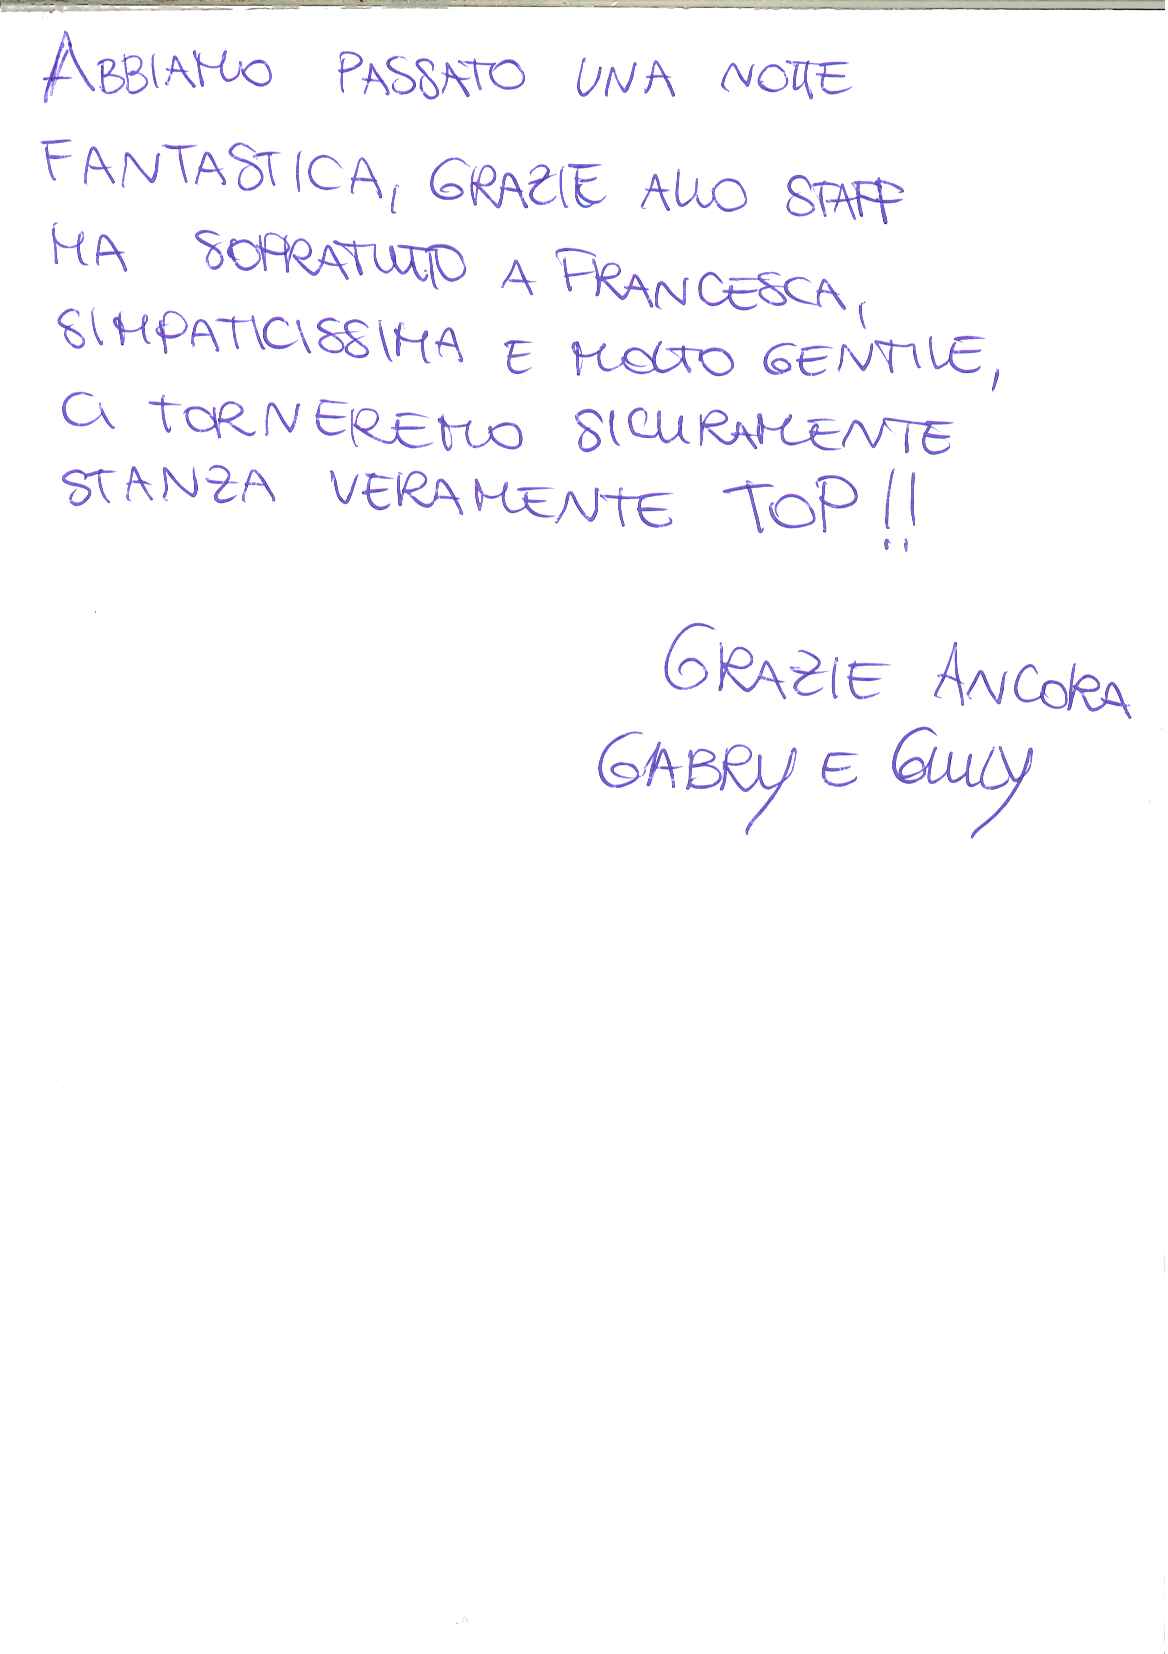 ABBIAMO PASSATO UNA NOTTE
FANTASTICA, GRAZIE ALLO STAFF
MA SOPRATUTTO A FRANCESCA,
SIMPATICISSIMA E MOLTO GENTILE,
CI TORNEREMO SICURAMENTE
STANZA VERAMENTE TOP!!
GRAZIE ANCORA
GABRY E GIULY